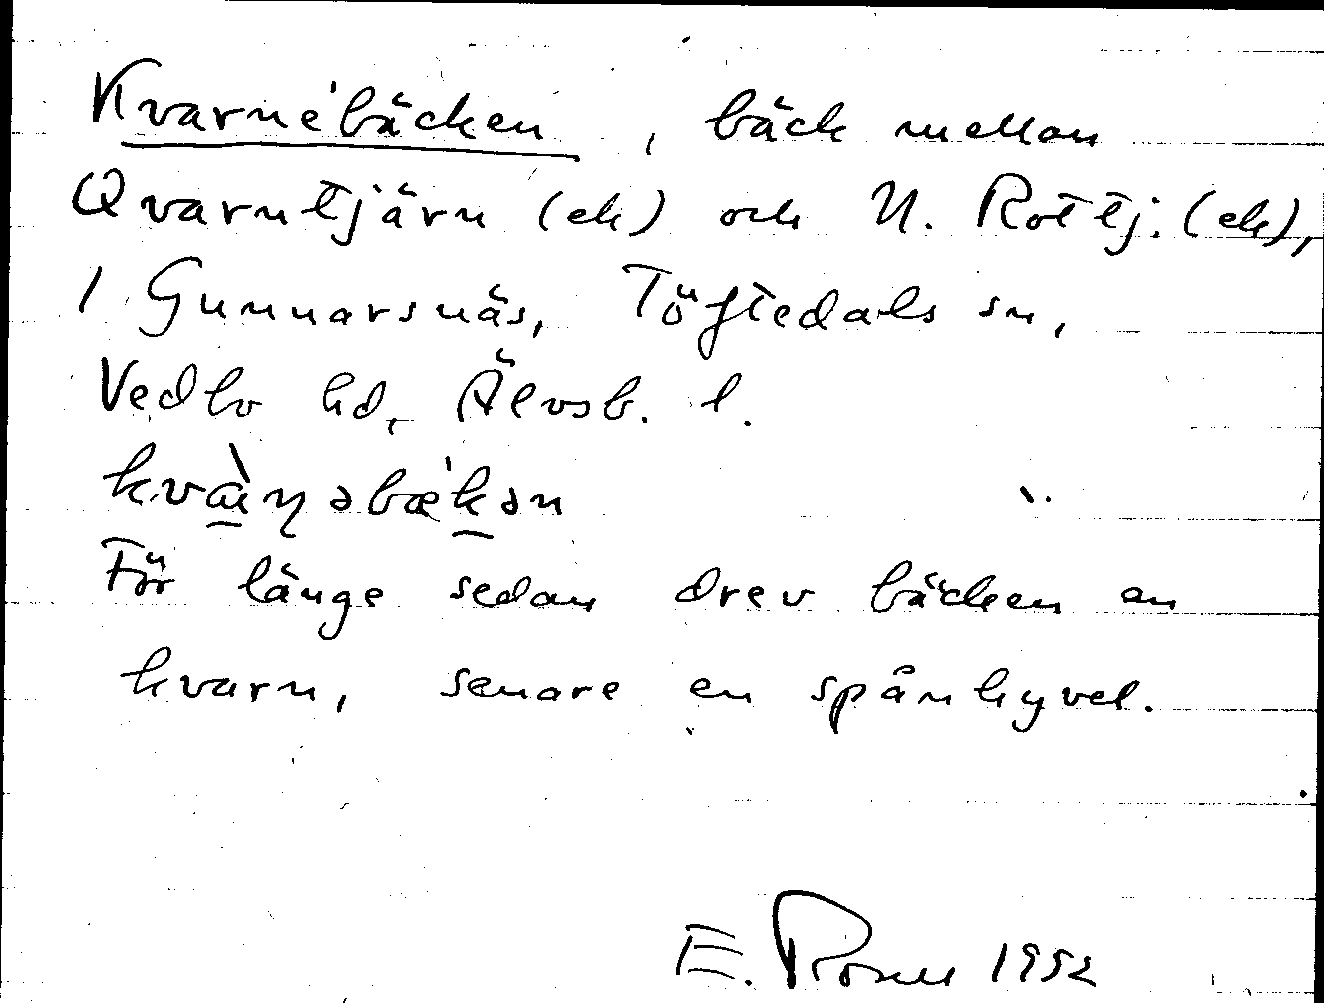 Kvarnebäcken, bäck mellan
Qvarntjärn (ek) och N. Rottj. (ek),
1 Gunnarsnäs, Töftedals sn,
Vedbo hd, Älvsb. l.
För länge sedan drev bäcken en
kvarn, senare en spånhyvel.
E. 1952